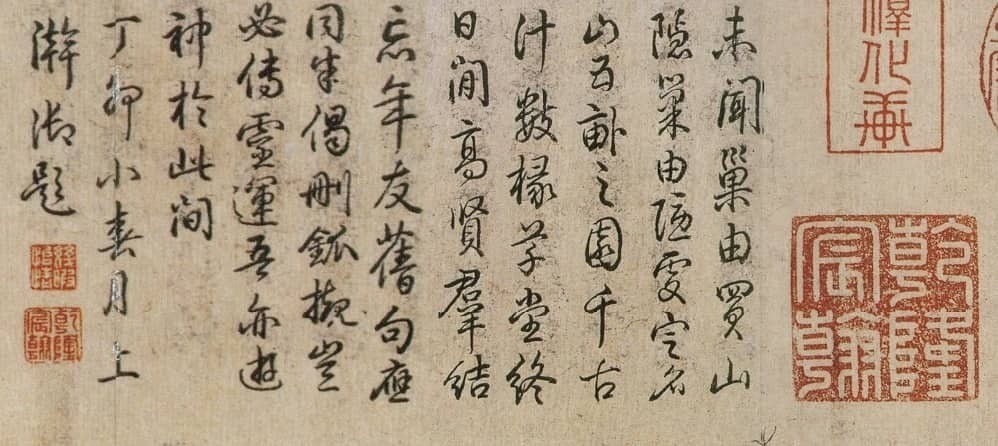 未聞巢由買山
隱巢由隱處定名
山五畝之園千古
計數椽草堂終
日閒高賢羣結
忘年友舊句應
同半偈刪鈲摫豈
必傳靈運吾亦遊
神於此間
丁卯小春月上
澣御題
乾隆宸翰
乾隆宸翰